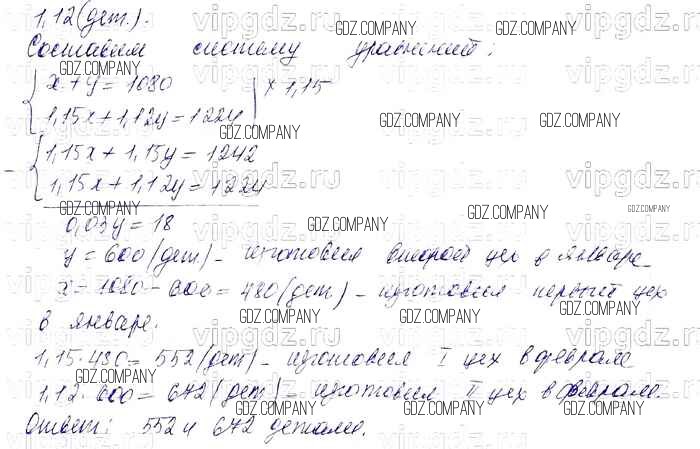 1,12(дет.).
Составим систему уравнений:
{ x + y = 1080 | × 1,15
1,15x + 1,12y = 1224
- { 1,15x + 1,15y = 1242
1,15x + 1,12y = 1224
0,03y = 18
y = 600 (дет) - изготовил второй цех в январе
x = 1080 - 600 = 480 (дет) - изготовил первый цех
в январе.
1,15·480 = 552 (дет) - изготовил I цех в феврале
1,12·600 = 672 (дет) - изготовил II цех в феврале.
Ответ: 552 и 672 детали.
GDZ.COMPANY
vipgdz.ru